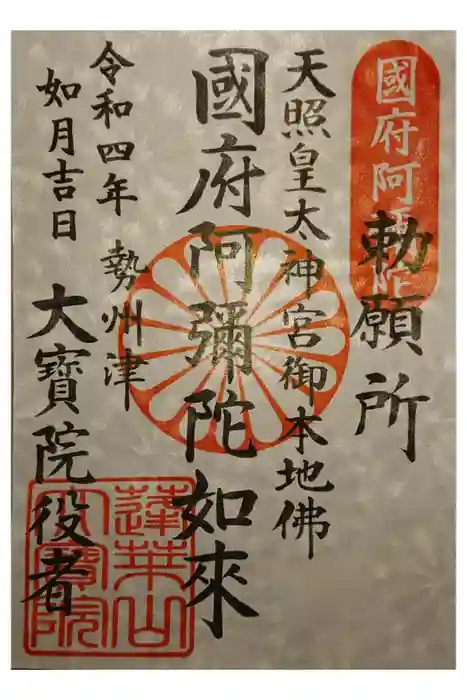 國府阿彌陀
勅願所
天照皇太神宮御本地佛
國府阿彌陀如來
令和四年
如月吉日
勢州津
大寶院役者
蓮華山
大寶院